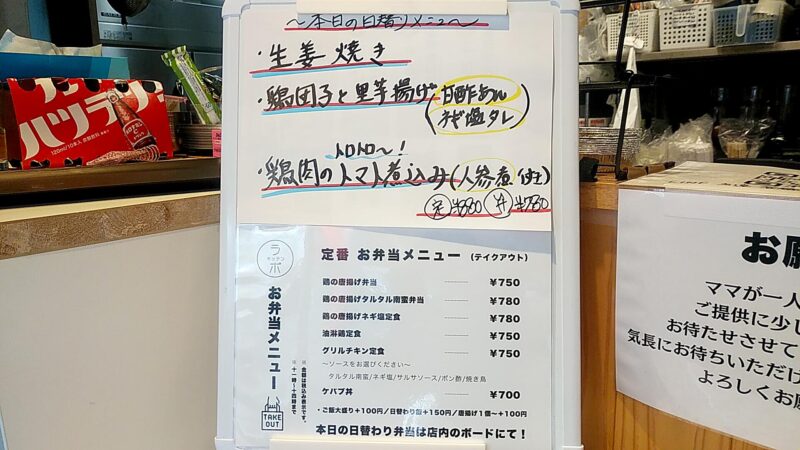 ～本日の日替りメニュー～
・生姜焼き
・鶏団子と里芋揚げ(甘酢あん
ネギ塩タレ)
トロトロ～!
・鶏肉のトマト煮込み(人参煮付)
定¥880 弁¥780
ラボ
キッチン
お弁当メニュー
TAKE OUT
定番 お弁当メニュー (テイクアウト)
鶏の唐揚げ弁当 ¥750
鶏の唐揚げタルタル南蛮弁当 ¥780
鶏の唐揚げネギ塩定食 ¥780
油淋鶏定食 ¥750
グリルチキン定食 ¥750
～ソースをお選びください～
タルタル南蛮/ネギ塩/サルサソース/ポン酢/焼き鳥
ケバブ丼 ¥700
・ご飯大盛り+100円/日替わり飯+150円/唐揚げ1個～+100円
本日の日替わり弁当は店内のボードにて!
金額は税込み表示です。
十一時～十四時まで
ハツラツ
120ml/10本入
お願
ママが一人
ご提供に少し
お待たせさせて
気長にお待ちいただけ
よろしくお願